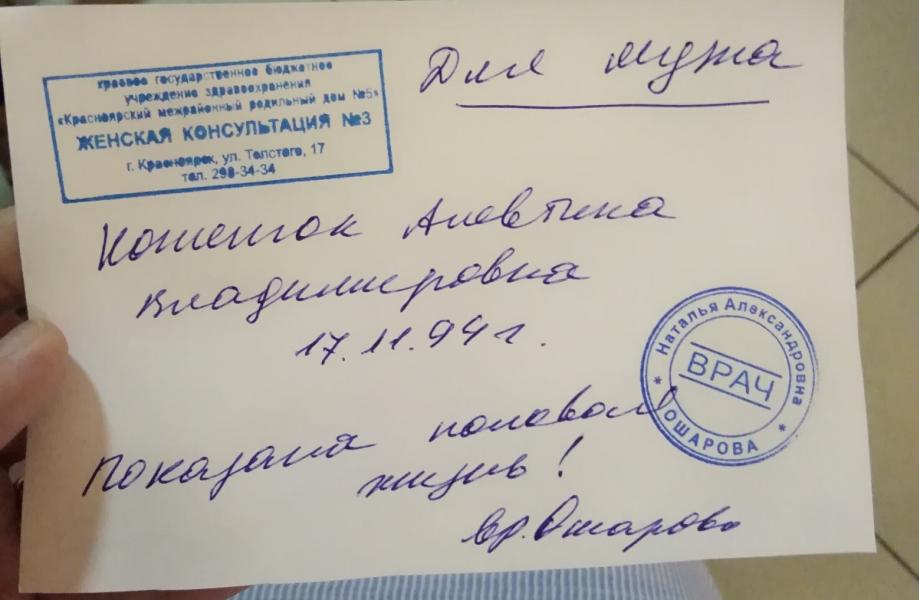 краевое государственное бюджетное
учреждение здравоохранения
«Красноярский межрайонный родильный дом №5»
ЖЕНСКАЯ КОНСУЛЬТАЦИЯ №3
г. Красноярск, ул. Толстого, 17
тел. 298-34-34
Для мужа
Алевтина
Владимировна
17.11.94 г.
Наталья Александровна
ВРАЧ
ОШАРОВА
Показана половая
жизнь!
вр. Ошарова